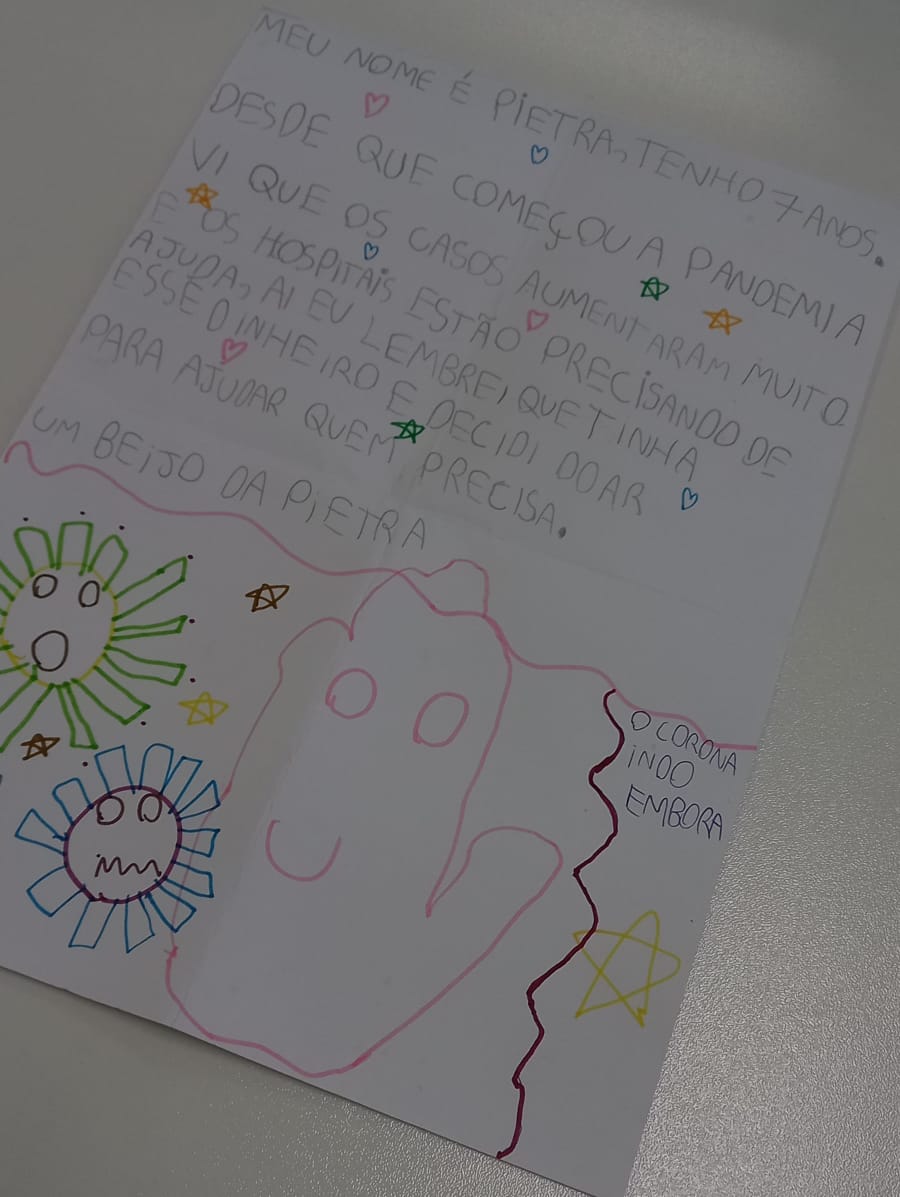 MEU NOME É PIETRA, TENHO 7 ANOS.
DESDE QUE COMEÇOU A PANDEMIA
VI QUE OS CASOS AUMENTARAM MUITO
E OS HOSPITAIS ESTÃO PRECISANDO DE
AJUDA, AI EU LEMBREI QUE TINHA
ESSE DINHEIRO E DECIDI DOAR
PARA AJUDAR QUEM PRECISA.
UM BEIJO DA PIETRA
O CORONA
INDO
EMBORA